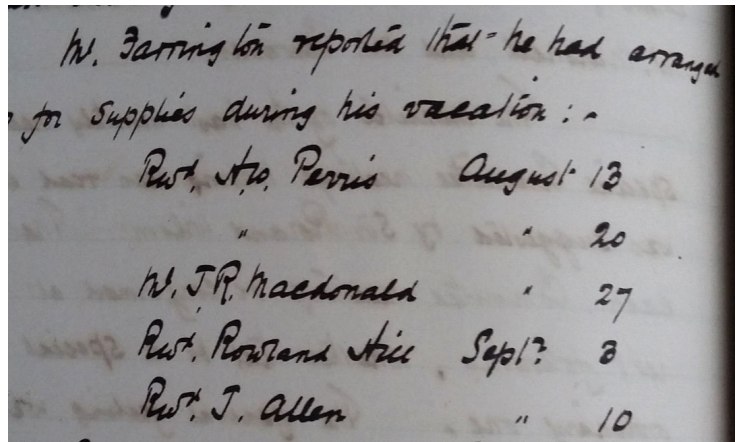 Mr. Farrington reported that he had arranged
for Supplies during his vacation :-
Revd. H.W. Perris August 13
" " 20
Mr. J.R. Macdonald " 27
Revd. Rowland Hill Sept. 3
Revd. J. Allen " 10